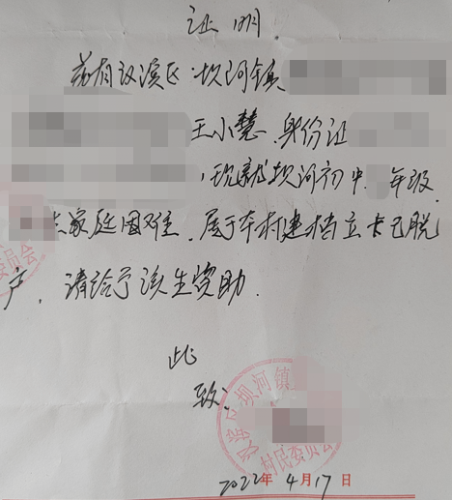 证明
兹有汉滨区坝河镇
王小慧,身份证
,现就读坝河初中 年级,
家庭困难,属于本村建档立卡已脱
户,请给予该生资助.
此
致:
坝河镇
村民委员会
委员会
2022年4月17日